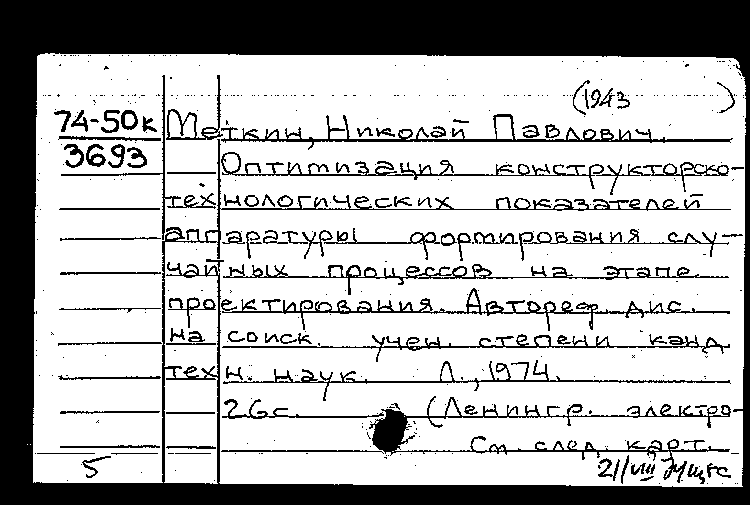 (1943 )
74-50к Меткин, Николай Павлович.
3693 Оптимизация конструкторско-
технологических показателей
аппаратуры формирования слу-
чайных процессов на этапе
проектирования. Автореф. дис.
на соиск. учен. степени канд.
техн. наук. Л., 1974.
26с. (Ленингр. электро-
См. след. карт.
5 21/VIII 74